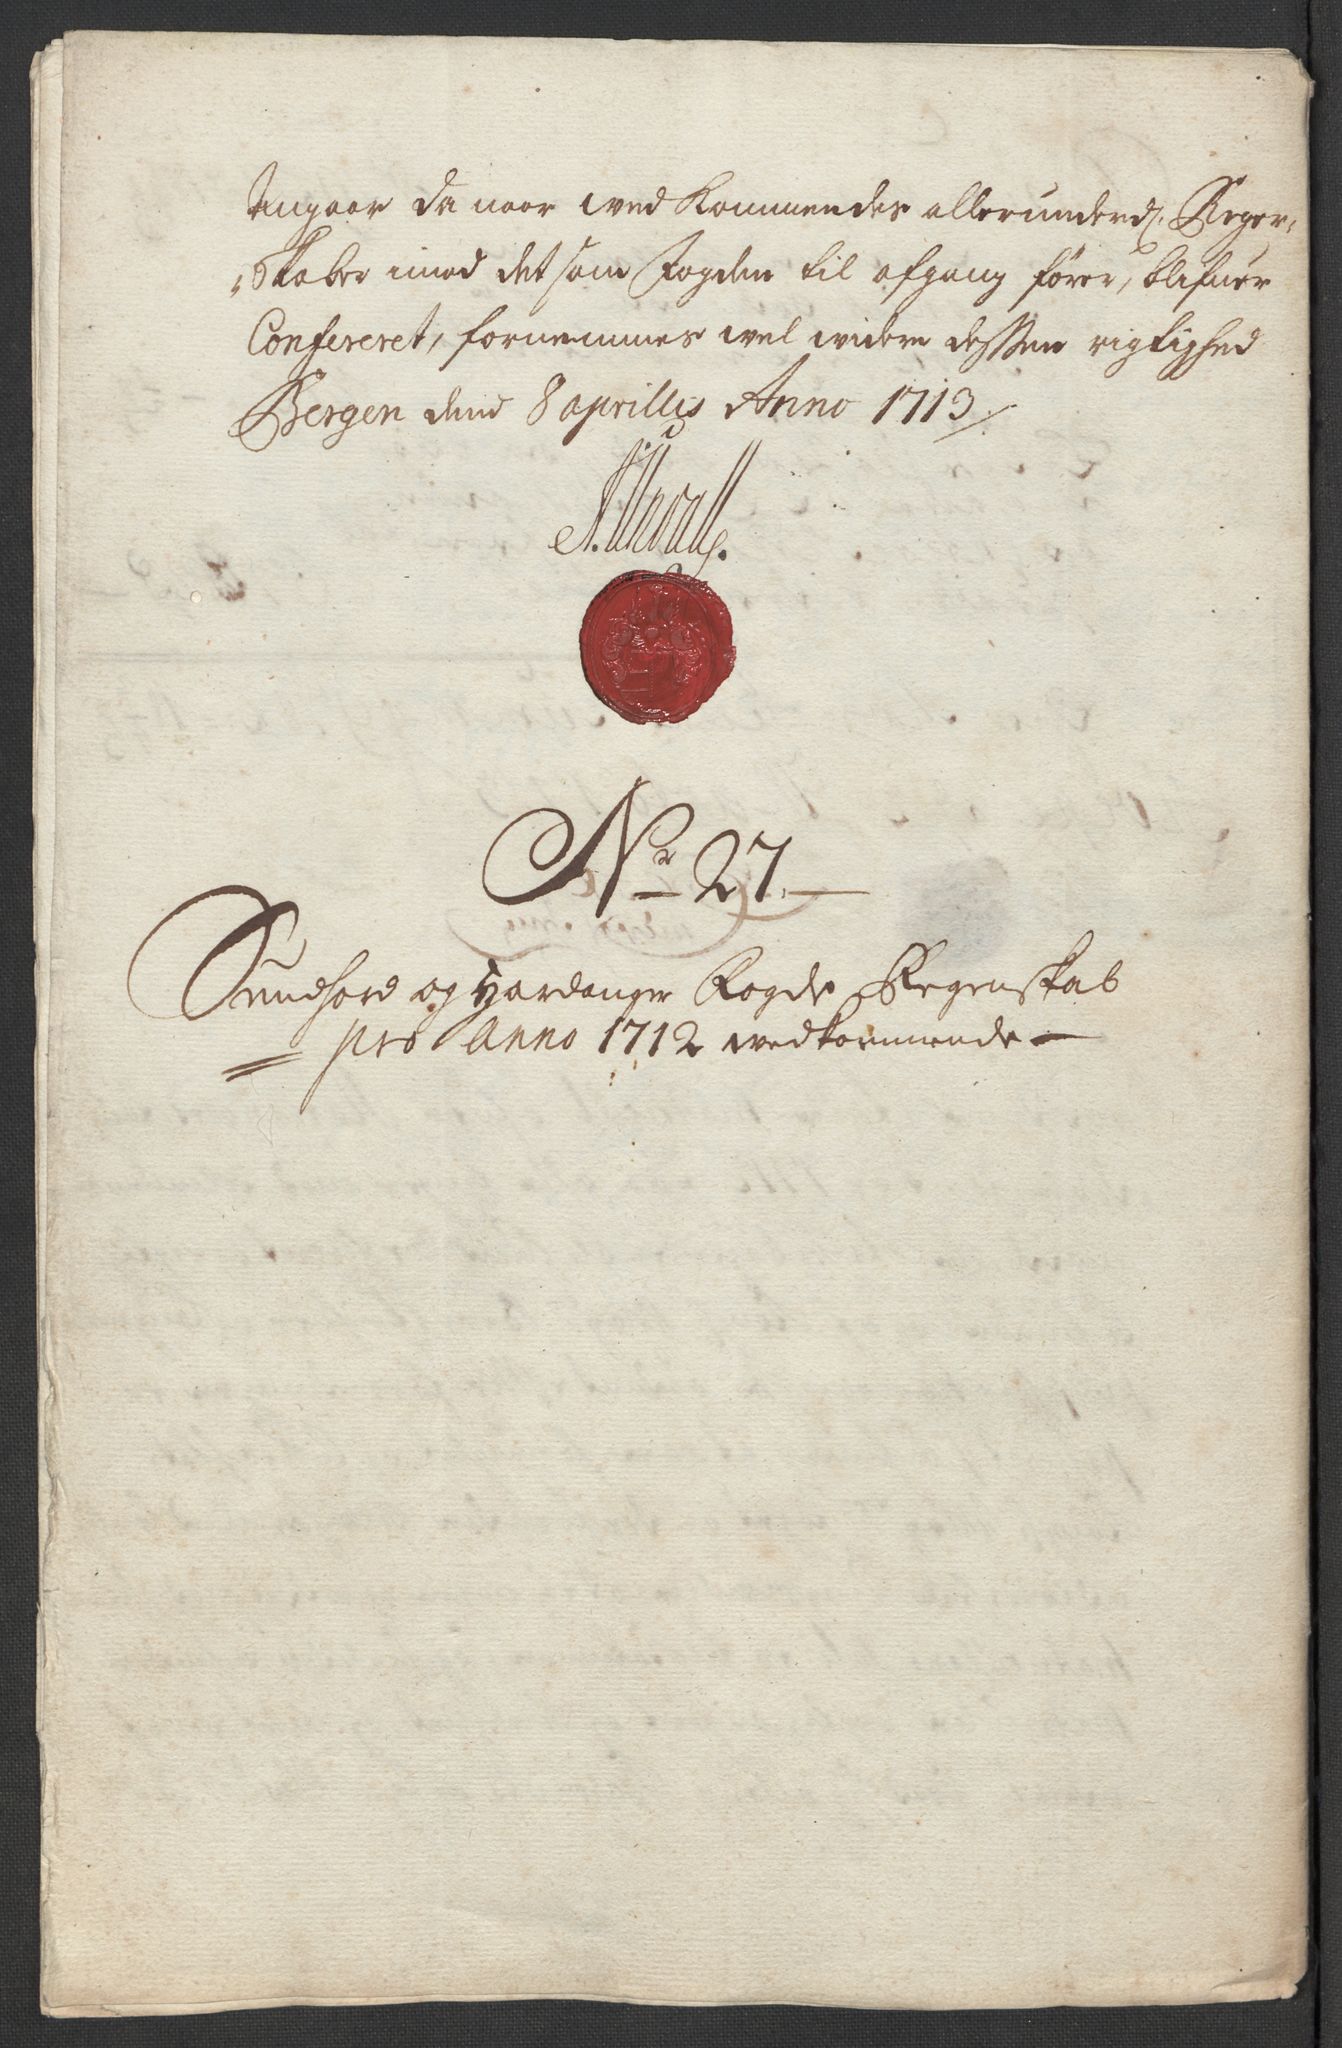 Angaar da naar wedkommendes allerunderd. Regen-
skaber imod det som fogden til afgang fører, blifuer
Confereret, fornemmes wel widere dessen rigtighed
Bergen dend 8 aprillis Anno 1713
Nr 27.
Sundhord og Hardanger Fogd. Regenskab
pro Anno 1712 wedkommende